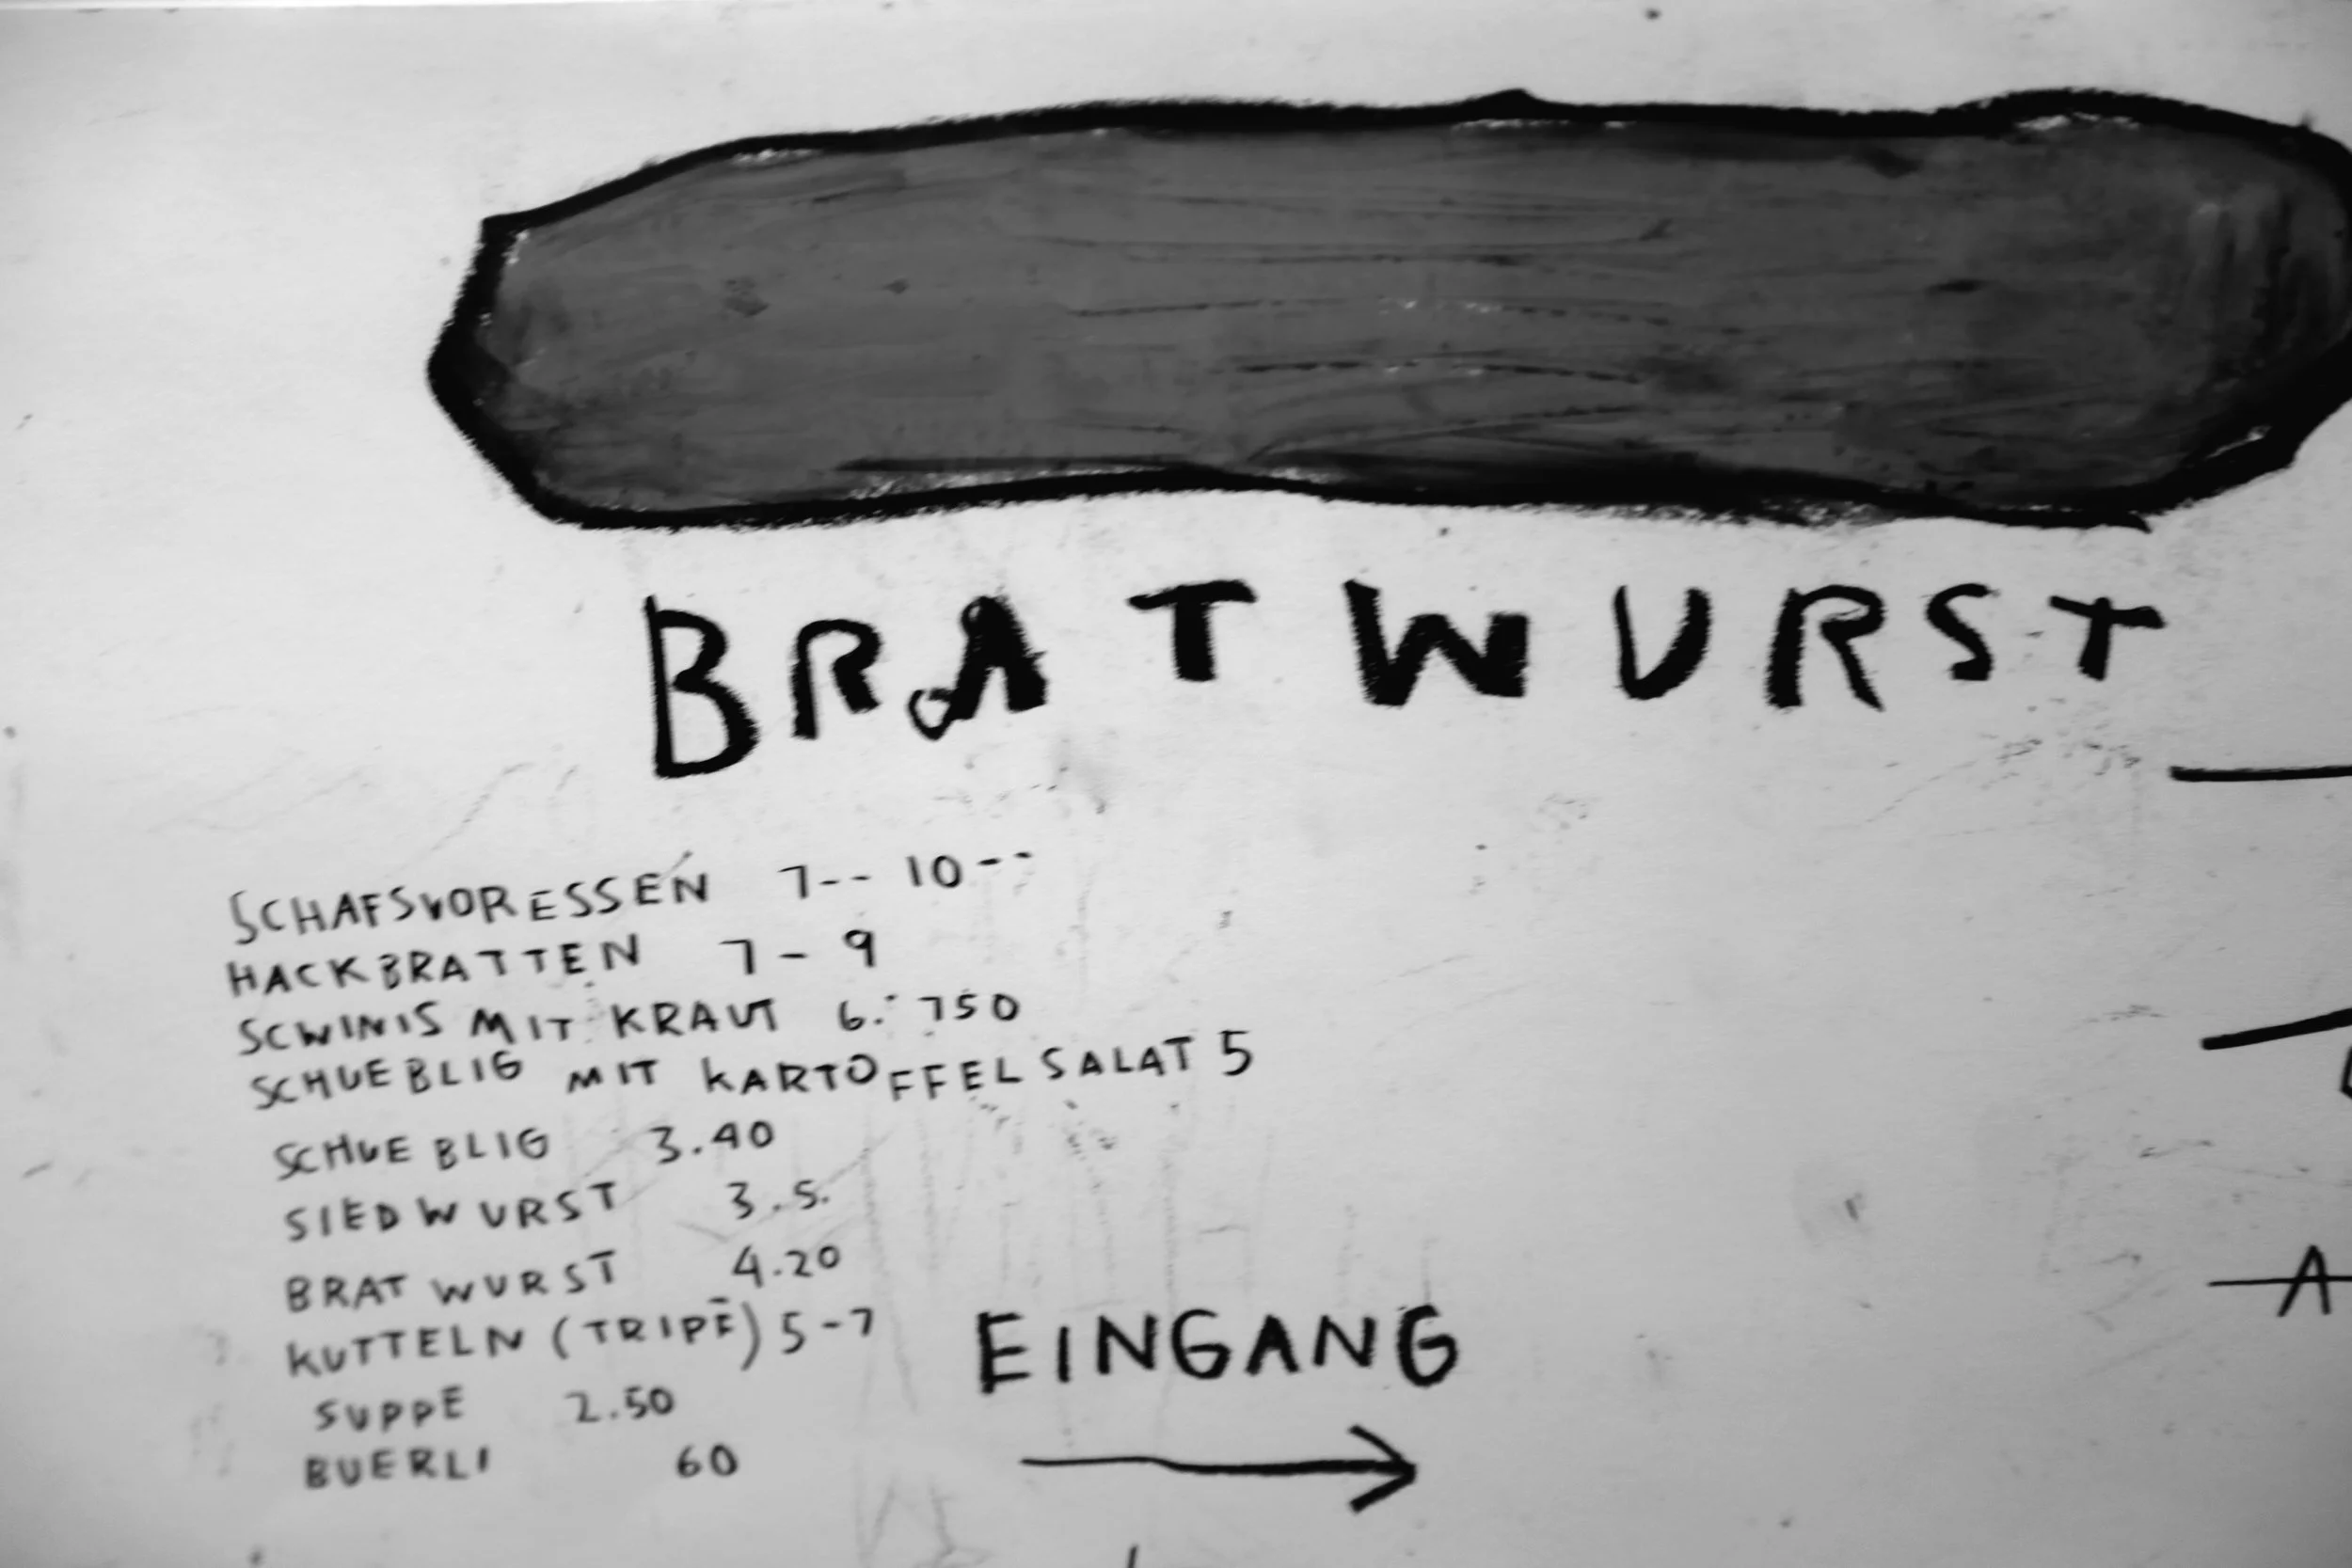 BRATWURST
SCHAFSVORESSEN 7-- 10--
HACKBRATTEN 7-9
SCWINIS MIT KRAUT 6.- 750
SCHUEBLIG MIT KARTOFFELSALAT 5
SCHUEBLIG 3.40
SIEDWURST 3.5.
BRATWURST 4.20
KUTTELN (TRIPE) 5-7
SUPPE 2.50
BUERLI 60
EINGANG
A